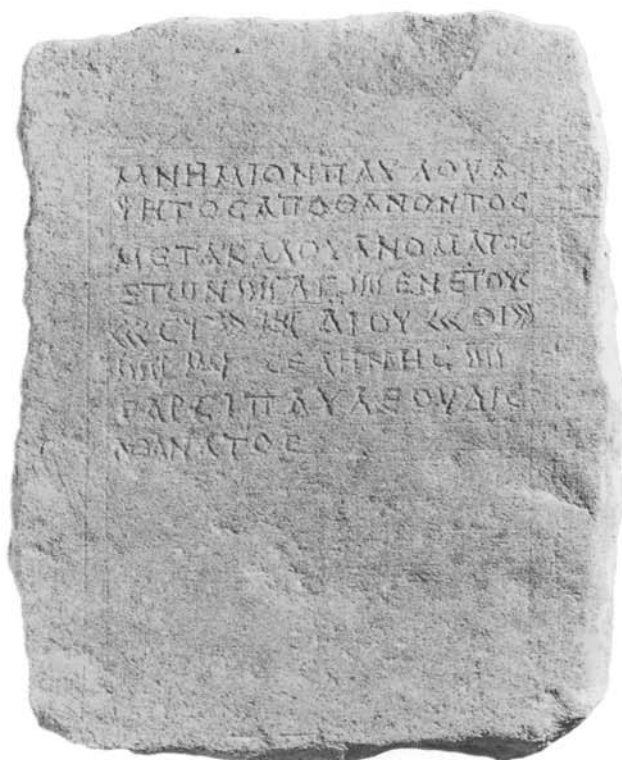 ΜΝΗΜΙΟΝΠΑΥΛΟΥΑ
ΨΗΤΟCΑΠΟΘΑΝΟΝΤΟC
ΜΕΤΑΚΑΛΟΥΑΝΟΜΑΤΟC
ΕΤΩΝ ΕΝΕΤΟΥC
ΔΙΟΥ ΘΙ
CΕΛΗΝΗC
ΘΑΡCΙΠΑΥΛΕΟΥΔΙC
ΑΘΑΝΑΤΟC